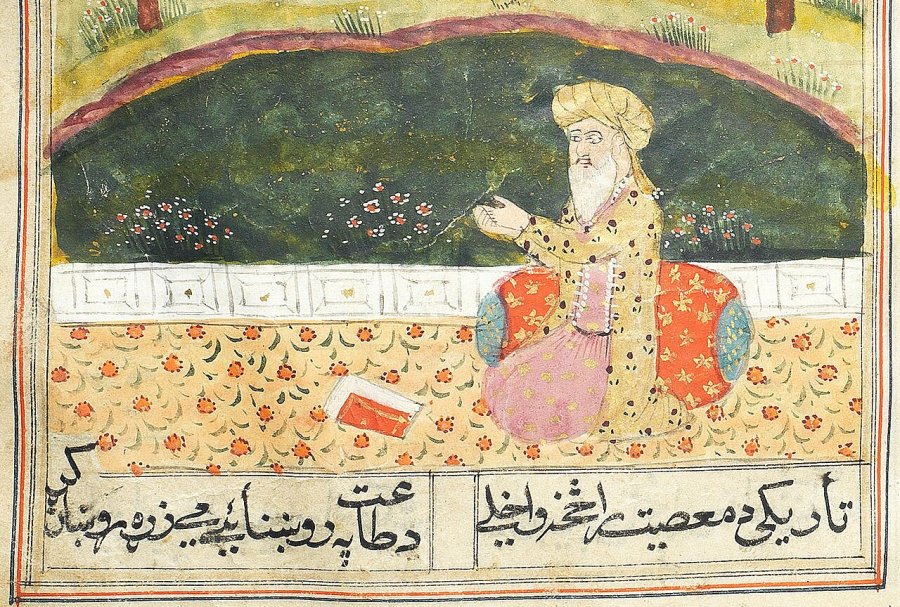 تاریکی د معصیت راڅخه واخلې
د طاعت په روښنائي مې زړه روښان کړې